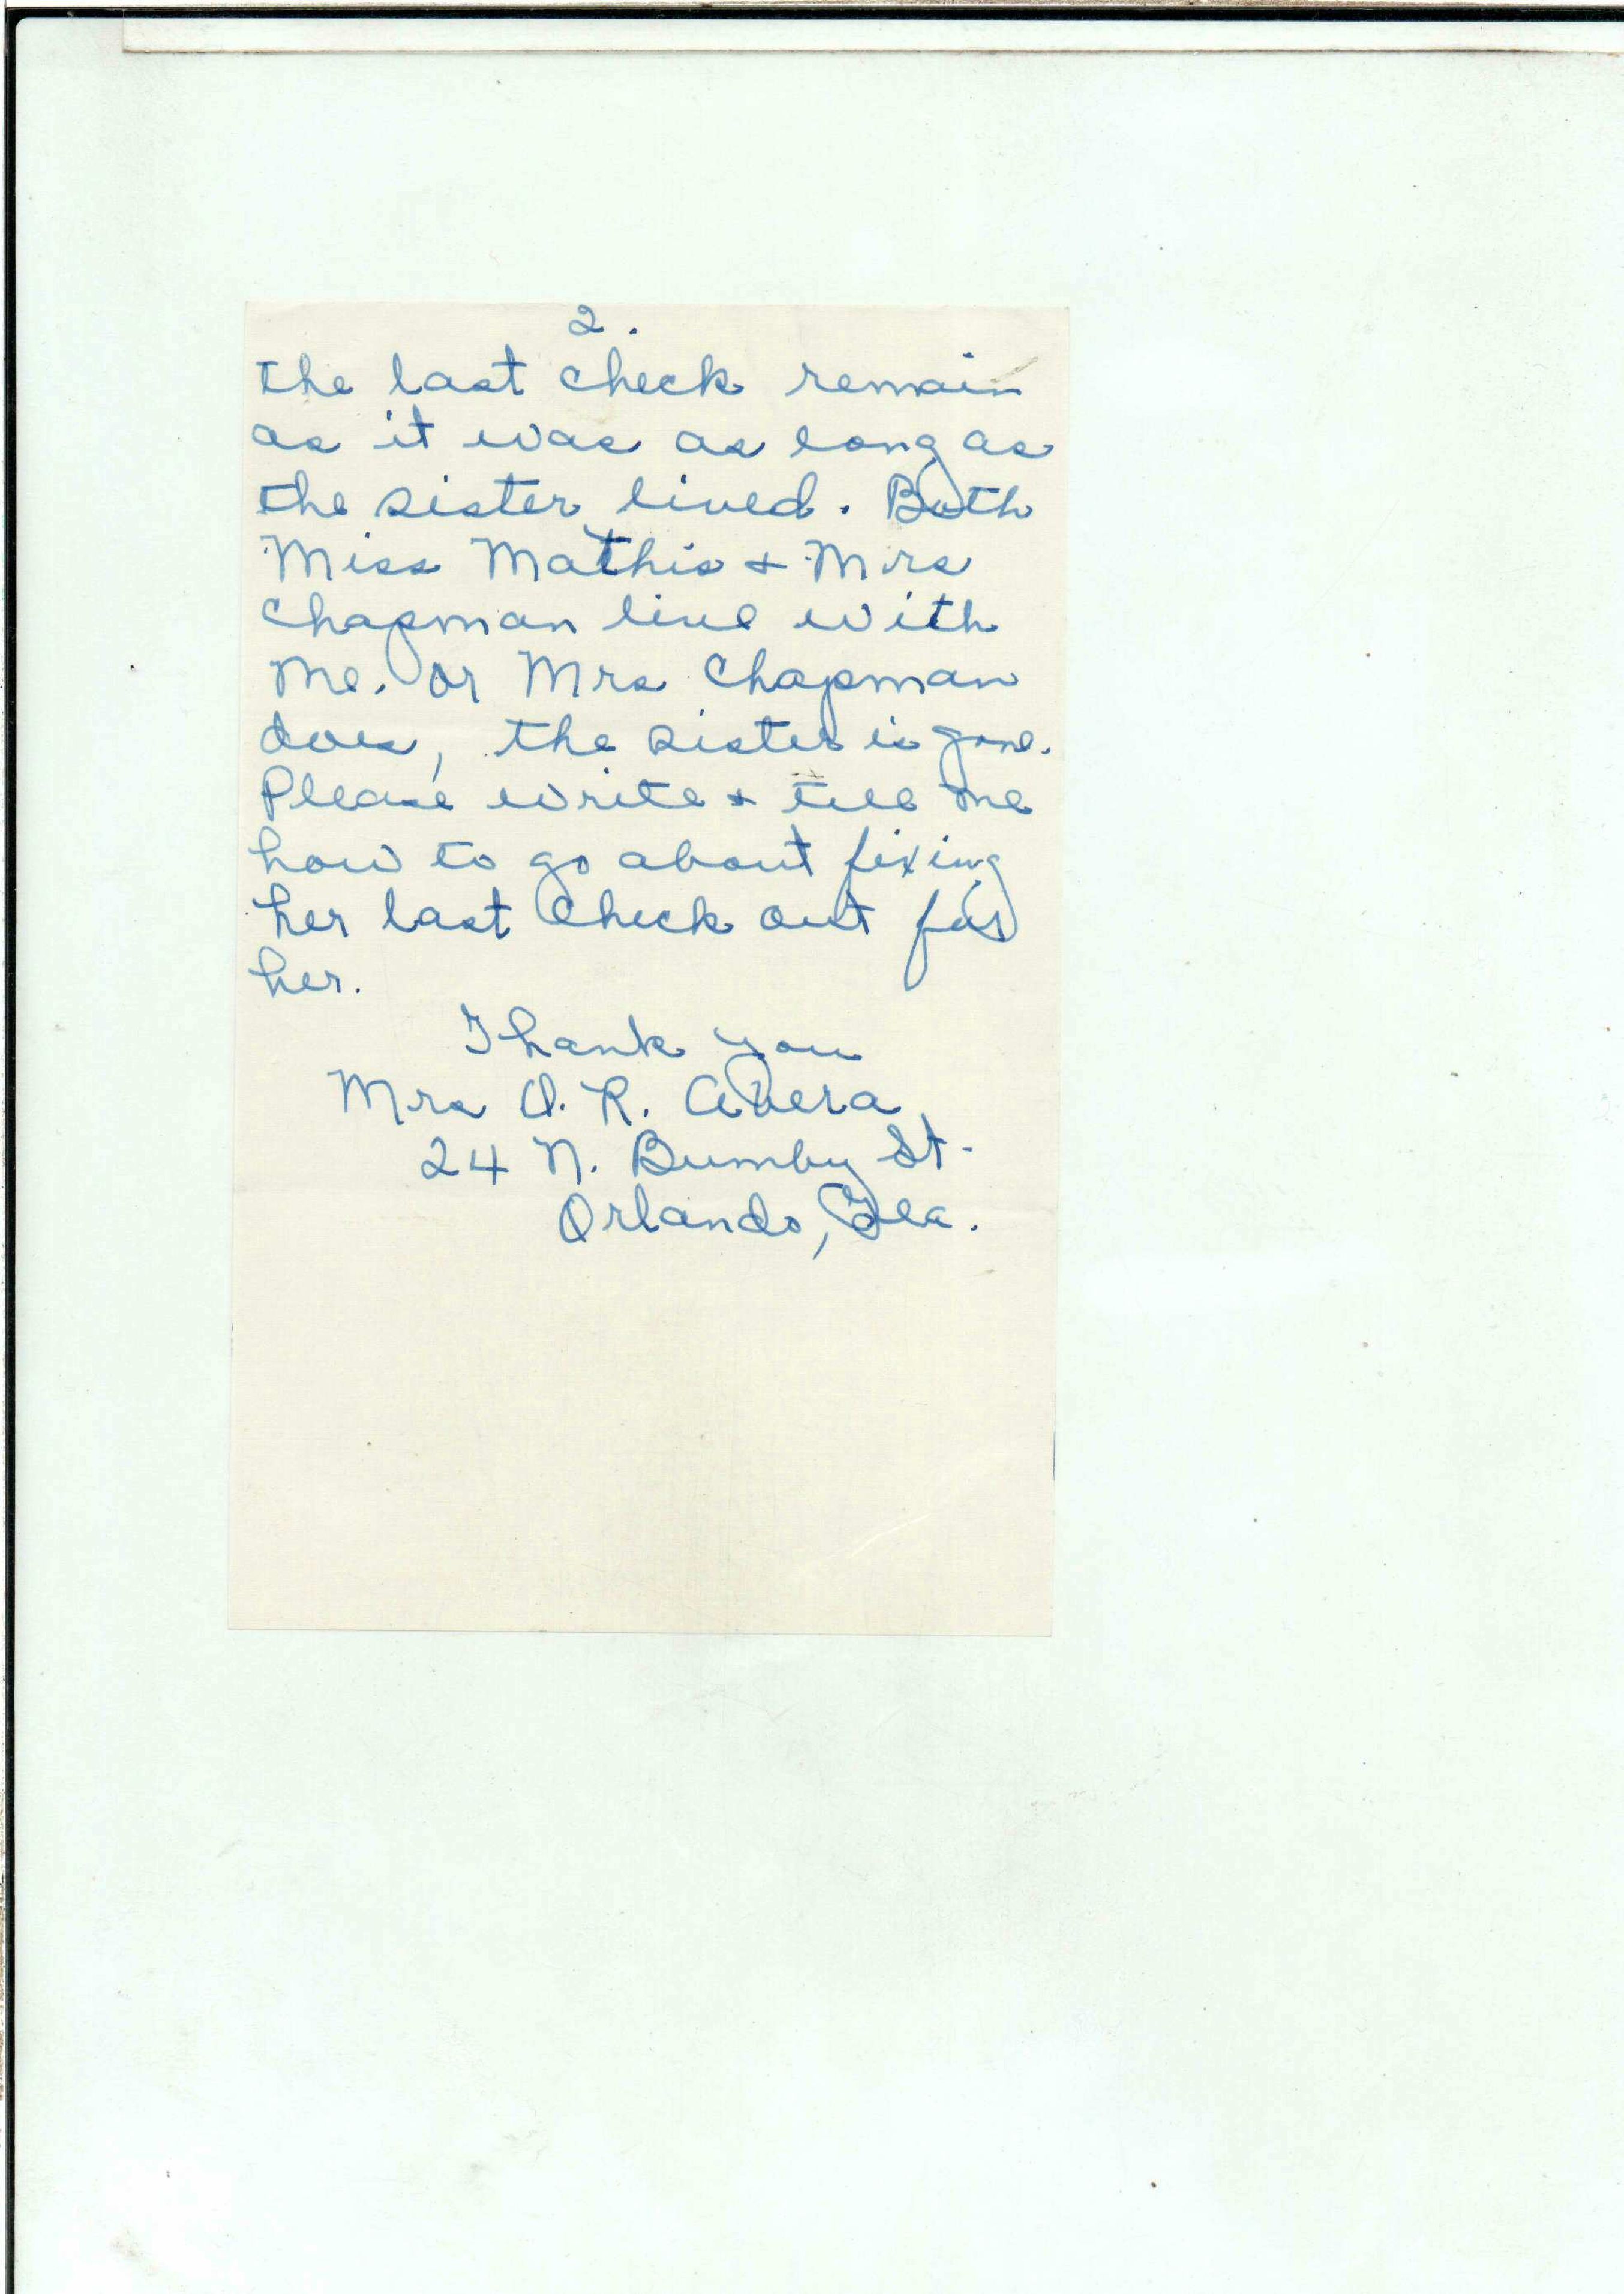 2.
the last check remain
as it was as long as
the sister lived. Both
Miss Mathis + Mrs
Chapman live with
me. or Mrs Chapman
does, the sister is gone.
Please write + tell me
how to go about fixing
her last check out for
her.
Thank you
Mrs O. R. Avera
24 N. Bumby St.
Orlando, Fla.